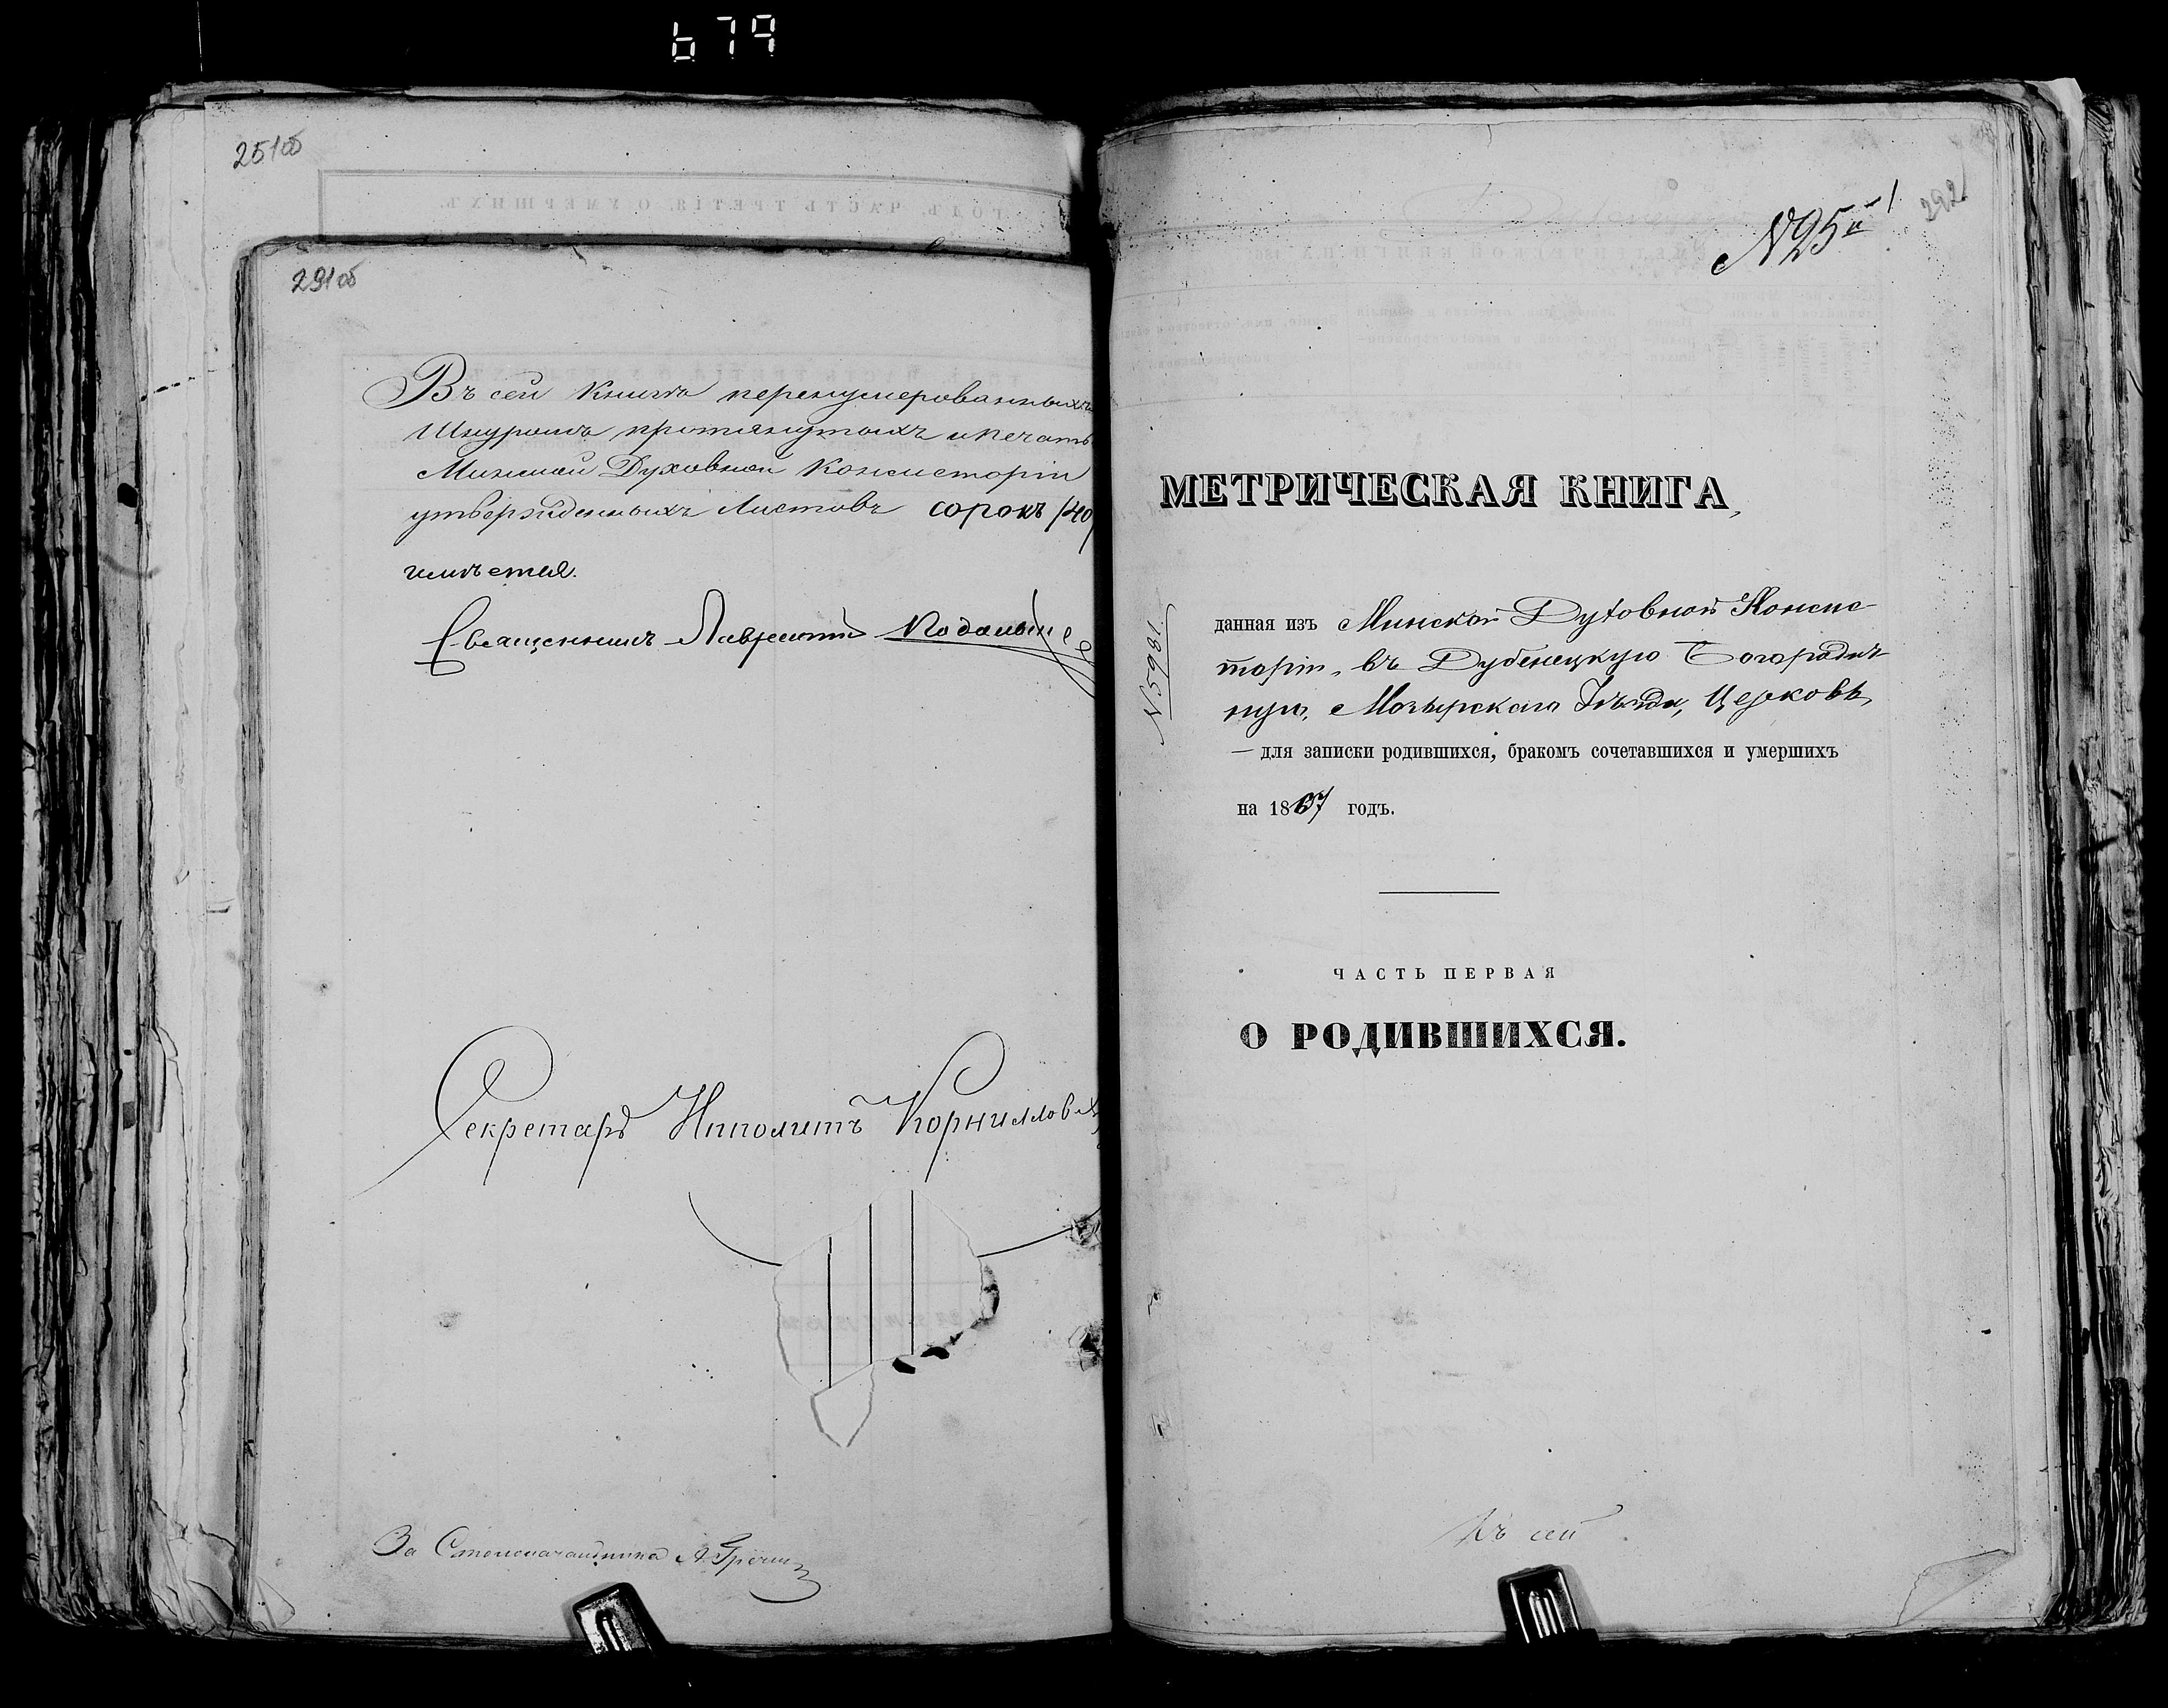 679
251об
291об
Въ сей Книгѣ перенумерованныхъ
Шнуромъ протянутыхъ и печать
Минской Духовной Консисторіи
утвержденныхъ Листовъ сорокъ /40/
имѣется.
Священникъ Лаврентій
Секретарь Ипполитъ Корнилов
За Столоначальника А.
292
N25й
МЕТРИЧЕСКАЯ КНИГА,
данная изъ Минской Духовной Консис
торіи, въ Дубенецкую Богородич
ную, Мозырскаго Уѣзда, Церковь,
— для записки родившихся, бракомъ сочетавшихся и умершихъ
на 1867 годъ.
N5981
ЧАСТЬ ПЕРВАЯ
О РОДИВШИХСЯ.
Къ сей